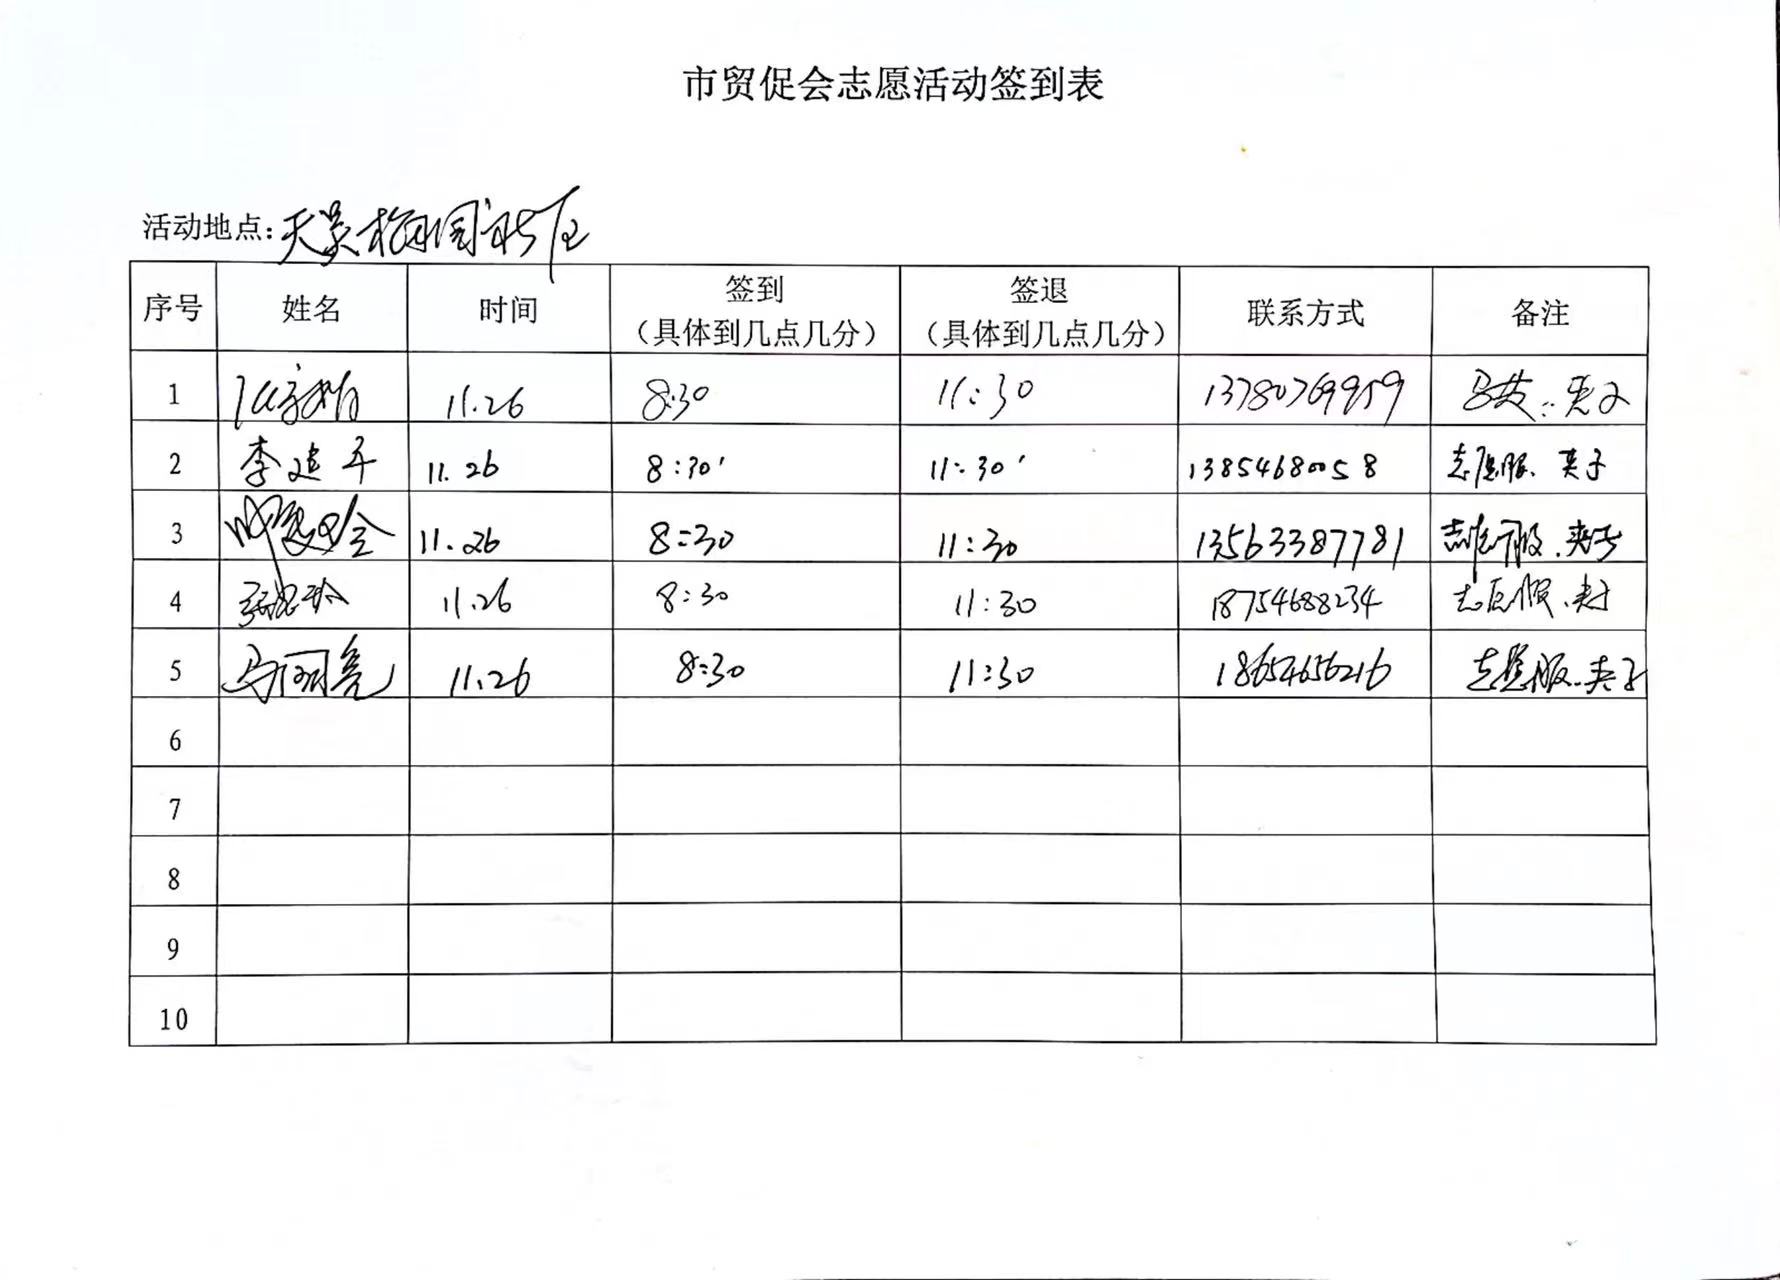 市贸促会志愿活动签到表
活动地点:
序号 姓名 时间 签到（具体到几点几分） 签退（具体到几点几分） 联系方式 备注
1 11.26 8:30 11:30 13780769959
2 李建军 11.26 8:30' 11:30' 13854680058 志愿服、夹子
3 11.26 8:30 11:30 13563387781 夹子
4 11.26 8:30 11:30 18754688234 志愿服、夹子
5 马丽亮 11.26 8:30 11:30 18654656216 志愿服、夹子
6
7
8
9
10